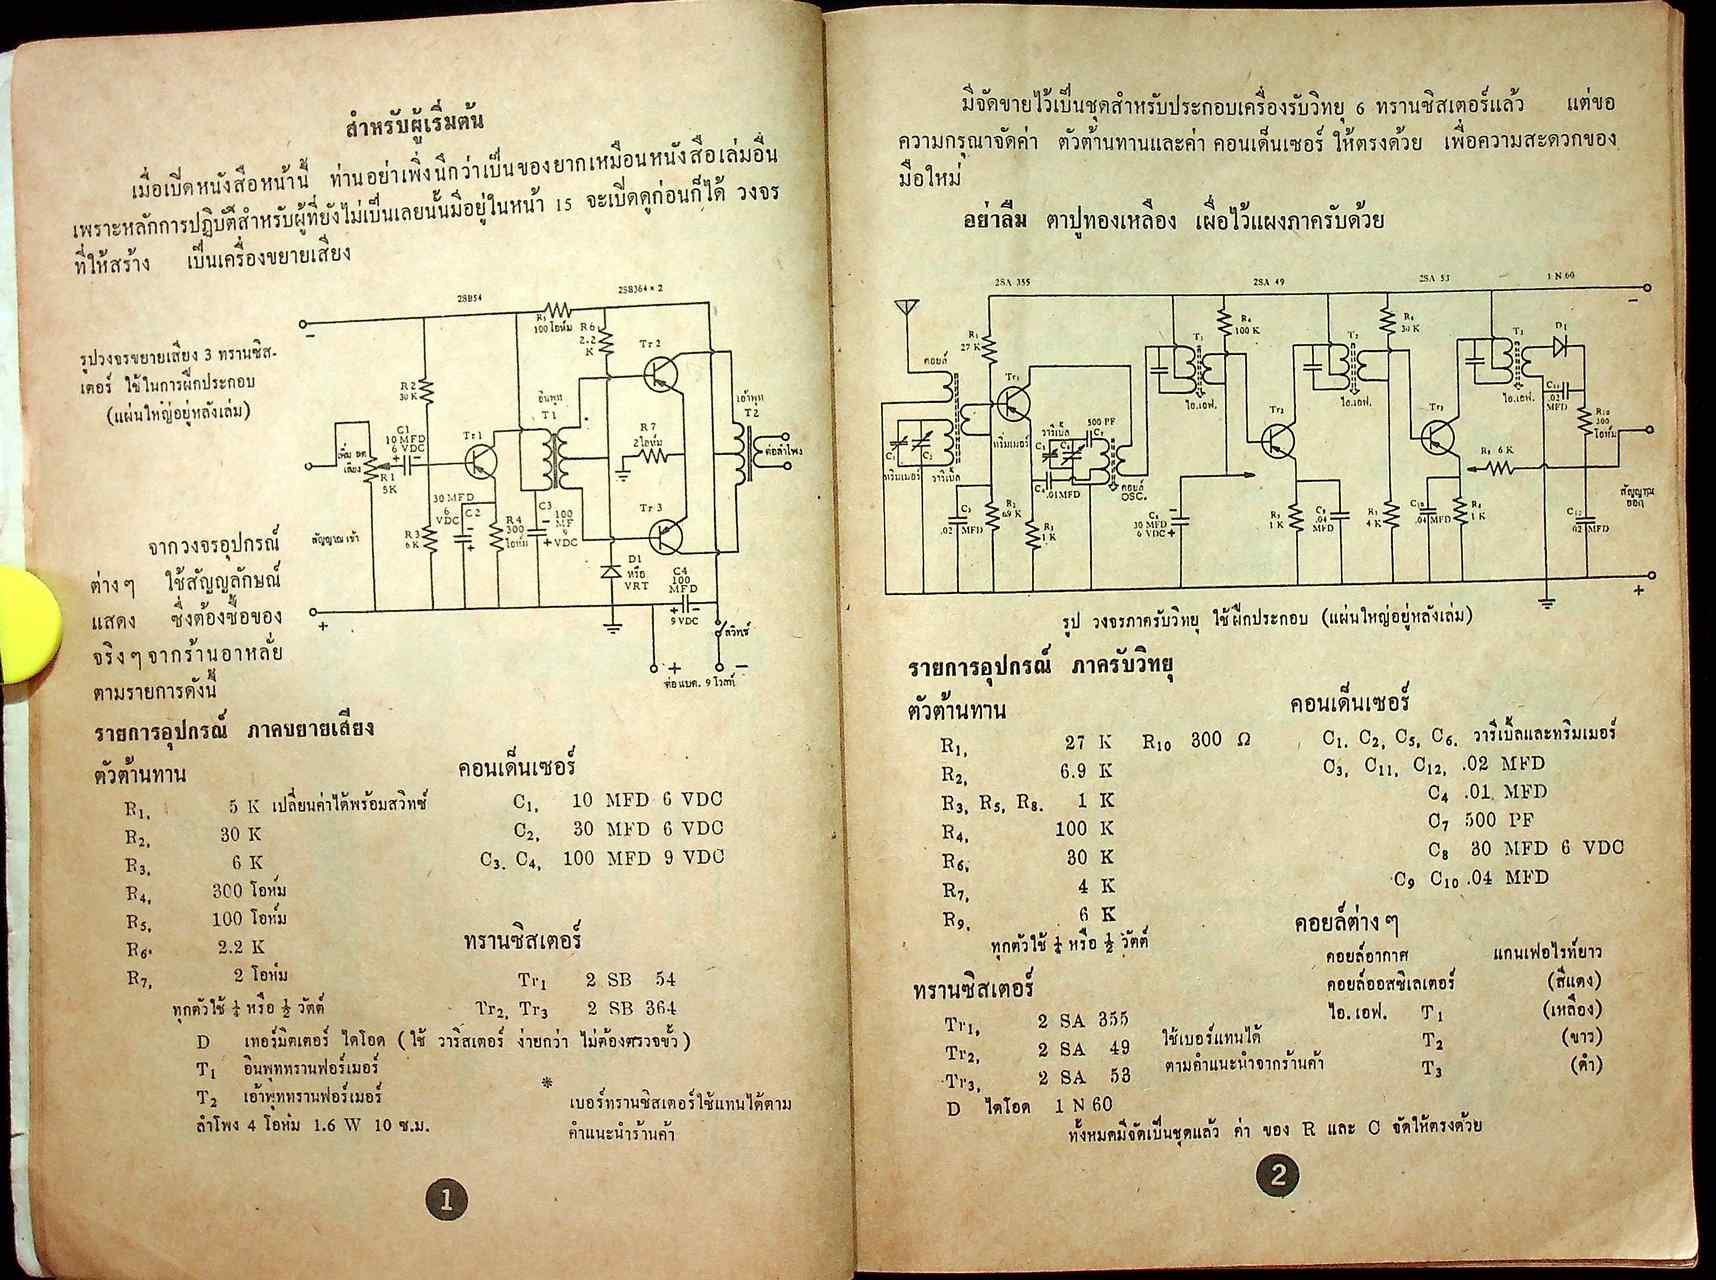 สำหรับผู้เริ่มต้น
เมื่อเปิดหนังสือหน้านี้ ท่านอย่าเพิ่งนึกว่าเป็นของยากเหมือนหนังสือเล่มอื่น
เพราะหลักการปฏิบัติสำหรับผู้ที่ยังไม่เป็นเลยนั้นมีอยู่ในหน้า 15 จะเปิดดูก่อนก็ได้ วงจร
ที่ให้สร้าง เป็นเครื่องขยายเสียง
รูปวงจรขยายเสียง 3 ทรานซิส-
เตอร์ ใช้ในการฝึกประกอบ
(แผ่นใหญ่อยู่หลังเล่ม)
2SB54
2SB364 × 2
R5
100 โอห์ม
R6
2.2
K
Tr 2
R2
30 K
อินพุท
T1
เอ้าพุท
T2
C1
10 MFD
6 VDC
Tr1
R7
2 โอห์ม
เพิ่ม ลด
เสียง
R1
5K
ต่อลำโพง
30 MFD
6
VDC
C2
R4
300
โอห์ม
C3
100
MF
9
VDC
Tr 3
สัญญาณ เข้า
R3
6K
D1
หรือ
VRT
C4
100
MFD
9 VDC
สวิทช์
+
+ −
ต่อ แบต. 9 โวลท์
จากวงจรอุปกรณ์
ต่างๆ ใช้สัญญลักษณ์
แสดง ซึ่งต้องซื้อของ
จริงๆจากร้านอาหลั่ย
ตามรายการดังนี้
รายการอุปกรณ์ ภาคขยายเสียง
ตัวต้านทาน
R1, 5 K เปลี่ยนค่าได้พร้อมสวิทช์
R2, 30 K
R3, 6 K
R4, 300 โอห์ม
R5, 100 โอห์ม
R6. 2.2 K
R7, 2 โอห์ม
ทุกตัวใช้ ¼ หรือ ½ วัตต์
คอนเด็นเซอร์
C1, 10 MFD 6 VDC
C2, 30 MFD 6 VDC
C3. C4, 100 MFD 9 VDC
ทรานซิสเตอร์
Tr1 2 SB 54
Tr2, Tr3 2 SB 364
D เทอร์มิตเตอร์ ไดโอด (ใช้ วาริสเตอร์ ง่ายกว่า ไม่ต้องตรวจขั้ว)
T1 อินพุททรานฟอร์เมอร์
T2 เอ้าพุททรานฟอร์เมอร์
ลำโพง 4 โอห์ม 1.6 W 10 ซ.ม.
*
เบอร์ทรานซิสเตอร์ใช้แทนได้ตาม
คำแนะนำร้านค้า
1
มีจัดขายไว้เป็นชุดสำหรับประกอบเครื่องรับวิทยุ 6 ทรานซิสเตอร์แล้ว แต่ขอ
ความกรุณาจัดค่า ตัวต้านทานและค่า คอนเด็นเซอร์ ให้ตรงด้วย เพื่อความสะดวกของ
มือใหม่
อย่าลืม ตาปูทองเหลือง เผื่อไว้แผงภาครับด้วย
2SA 355
2SA 49
2SA 53
1 N 60
R1
27 K
R4
100 K
T1
T2
R6
30 K
T3
D1
คอยล์
Tr1
ไอ.เอฟ.
ไอ.เอฟ.
ไอ.เอฟ.
C11
.02
MFD
R10
300
โอห์ม
ทริมเมอร์
วาริเบิ้ล
500 PF
Tr2
Tr3
ทริมเมอร์ วาริเบิ้ล
C4 .01 MFD
คอยล์
OSC.
R9 6 K
สัญญาณ
ออก
C3
.02 MFD
R2
69 K
R3
1 K
C8
30 MFD
6 VDC
R5
1 K
C9
.04
MFD
R7
4 K
C10
.04 MFD
R8
1 K
C12
.02 MFD
+
รูป วงจรภาครับวิทยุ ใช้ฝึกประกอบ (แผ่นใหญ่อยู่หลังเล่ม)
รายการอุปกรณ์ ภาครับวิทยุ
ตัวต้านทาน
R1, 27 K R10 300 Ω
R2, 6.9 K
R3, R5, R8. 1 K
R4, 100 K
R6, 30 K
R7, 4 K
R9, 6 K
ทุกตัวใช้ ¼ หรือ ½ วัตต์
คอนเด็นเซอร์
C1. C2, C5, C6. วาริเบิ้ลและทริมเมอร์
C3, C11, C12, .02 MFD
C4 .01 MFD
C7 500 PF
C8 30 MFD 6 VDC
C9 C10 .04 MFD
คอยล์ต่างๆ
คอยล์อากาศ แกนเฟอไรท์ยาว
คอยล์ออสซิเลเตอร์ (สีแดง)
ไอ. เอฟ. T1 (เหลือง)
T2 (ขาว)
T3 (ดำ)
ทรานซิสเตอร์
Tr1, 2 SA 355
Tr2, 2 SA 49
Tr3, 2 SA 53
ใช้เบอร์แทนได้
ตามคำแนะนำจากร้านค้า
D ไดโอด 1 N 60
ทั้งหมดมีจัดเป็นชุดแล้ว ค่า ของ R และ C จัดให้ตรงด้วย
2